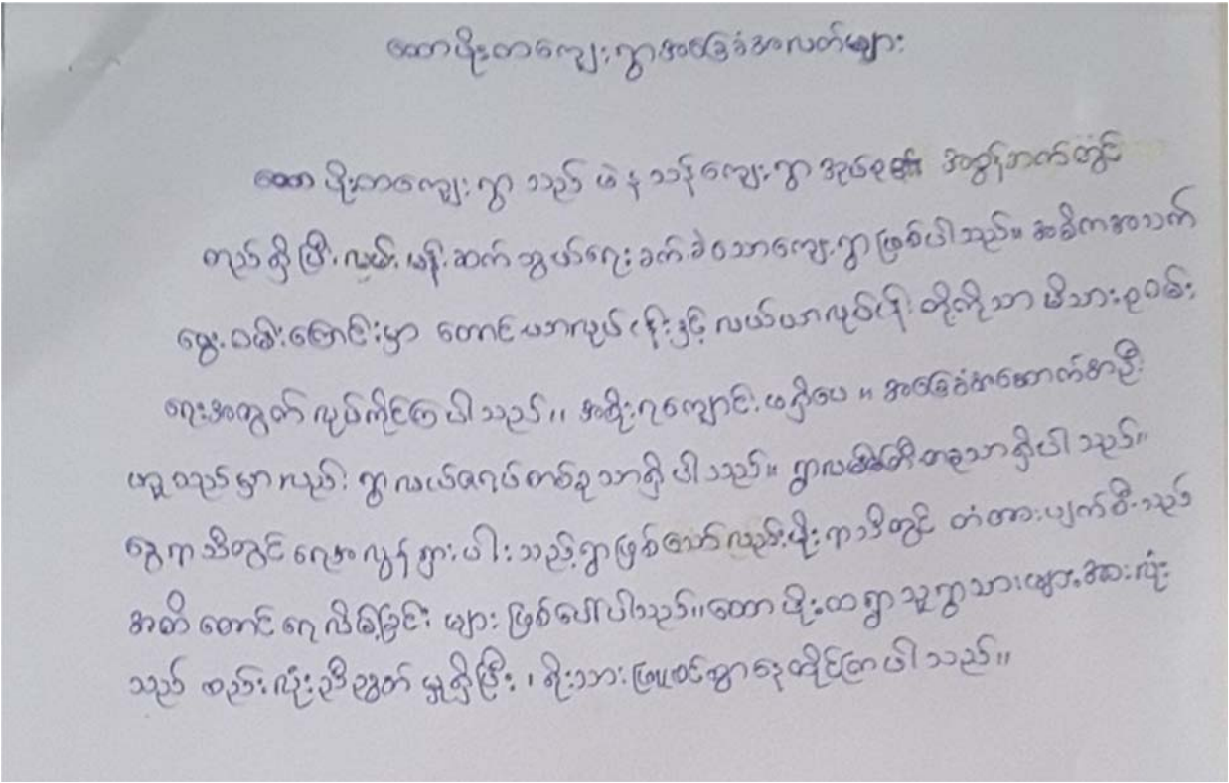 ထောဖိုးတကျေးရွာအခြေခံအလတ်များ
ထောဖိုးတကျေးရွာ သည် ဖဲနသန်ကျေးရွာအုပ်စု၏ အစွန်ဘက်တွင်
တည်ရှိပြီး လမ်းပန်းဆက်သွယ်ရေးခက်ခဲသောကျေးရွာဖြစ်ပါသည်။ အဓိကအသက်
မွေးဝမ်းကြောင်းမှာ တောင်ယာလုပ်ငန်းနှင့် လယ်ယာလုပ်ငန်း တို့ကိုသာ မိသားစုဝမ်း
ရေးအတွက် လုပ်ကိုင်ကြပါသည်။ အစိုးရကျောင်းမရှိပေ။ အခြေခံအဆောက်အဦး
ယူသည်မှာလည်း ရွာလယ်ဇရပ်တစ်ခုသာရှိပါသည်။ ရွာလမ်းမကြီးတခုသာရှိပါသည်။
နွေရာသီတွင်ရေအလွန်ရှားပါးသည့်ရွာဖြစ်သော်လည်းမိုးရာသီတွင် တံတားပျက်စီးသည်
အထိ တောင်ရေလျှံခြင်း များ ဖြစ်ပေါ်ပါသည်။ထောဖိုးတရွာသူရွာသားများအားလုံး
သည် စည်းလုံးညီညွတ်မှုရှိပြီး ၊ ရိုးသားဖြူစင်စွာနေထိုင်ကြပါသည်။